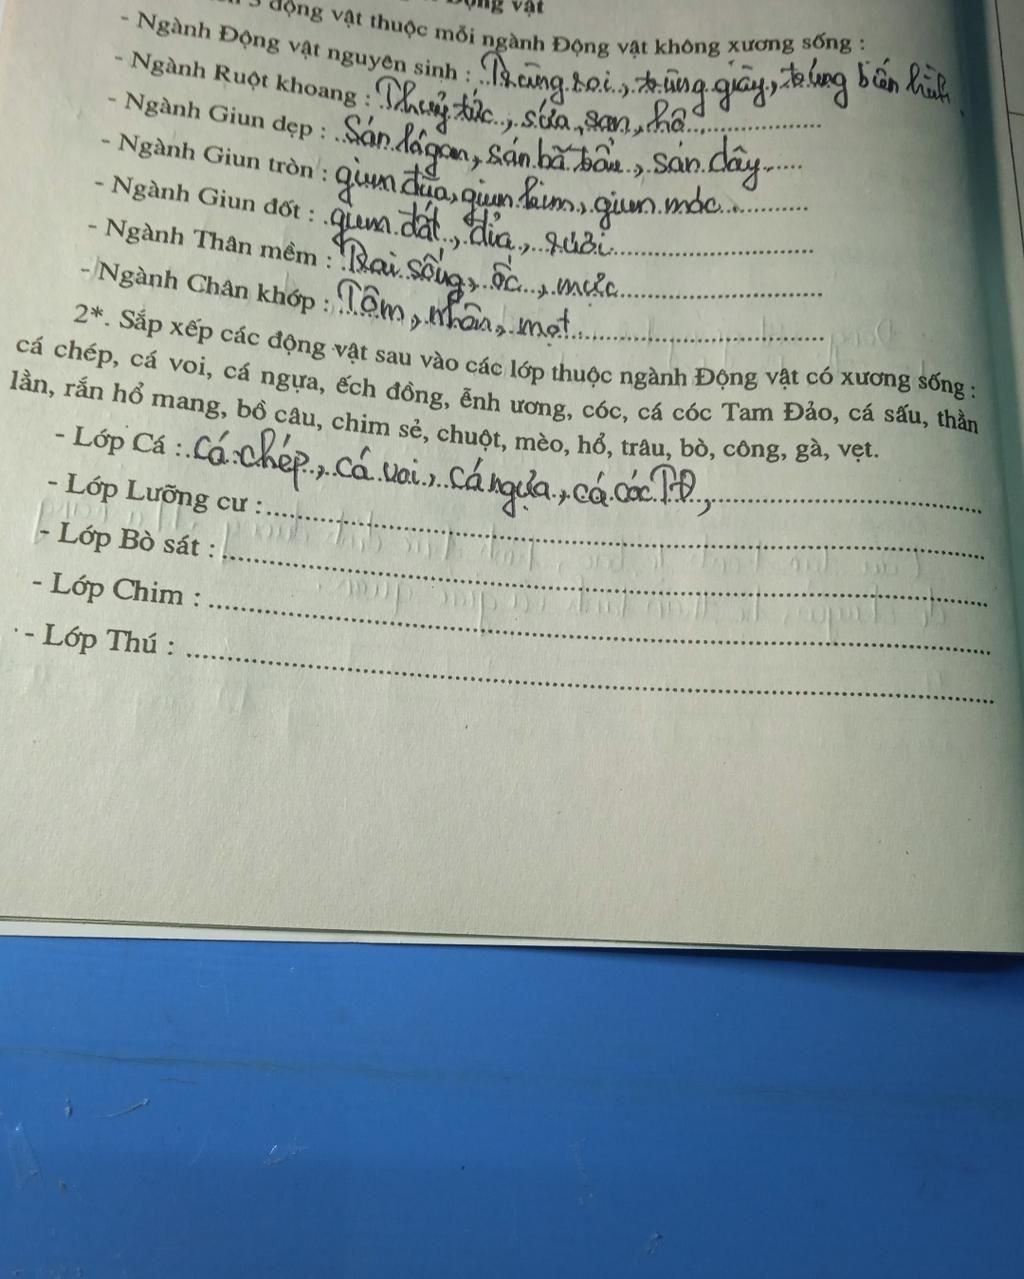 động vật
3 động vật thuộc mỗi ngành Động vật không xương sống :
- Ngành Động vật nguyên sinh : Trùng roi, trùng giày, trùng biến hình
- Ngành Ruột khoang : Thuỷ tức, sứa, san hô
- Ngành Giun dẹp : Sán lá gan, sán bã trầu, sán dây
- Ngành Giun tròn : giun đũa, giun kim, giun móc
- Ngành Giun đốt : giun đất, đỉa, rươi
- Ngành Thân mềm : Trai sông, ốc, mực
- Ngành Chân khớp : Tôm, nhện, mọt
2*. Sắp xếp các động vật sau vào các lớp thuộc ngành Động vật có xương sống :
cá chép, cá voi, cá ngựa, ếch đồng, ễnh ương, cóc, cá cóc Tam Đảo, cá sấu, thằn
lằn, rắn hổ mang, bồ câu, chim sẻ, chuột, mèo, hổ, trâu, bò, công, gà, vẹt.
- Lớp Cá : cá chép, cá voi, cá ngựa, cá cóc TĐ,
- Lớp Lưỡng cư :
- Lớp Bò sát :
- Lớp Chim :
- Lớp Thú :